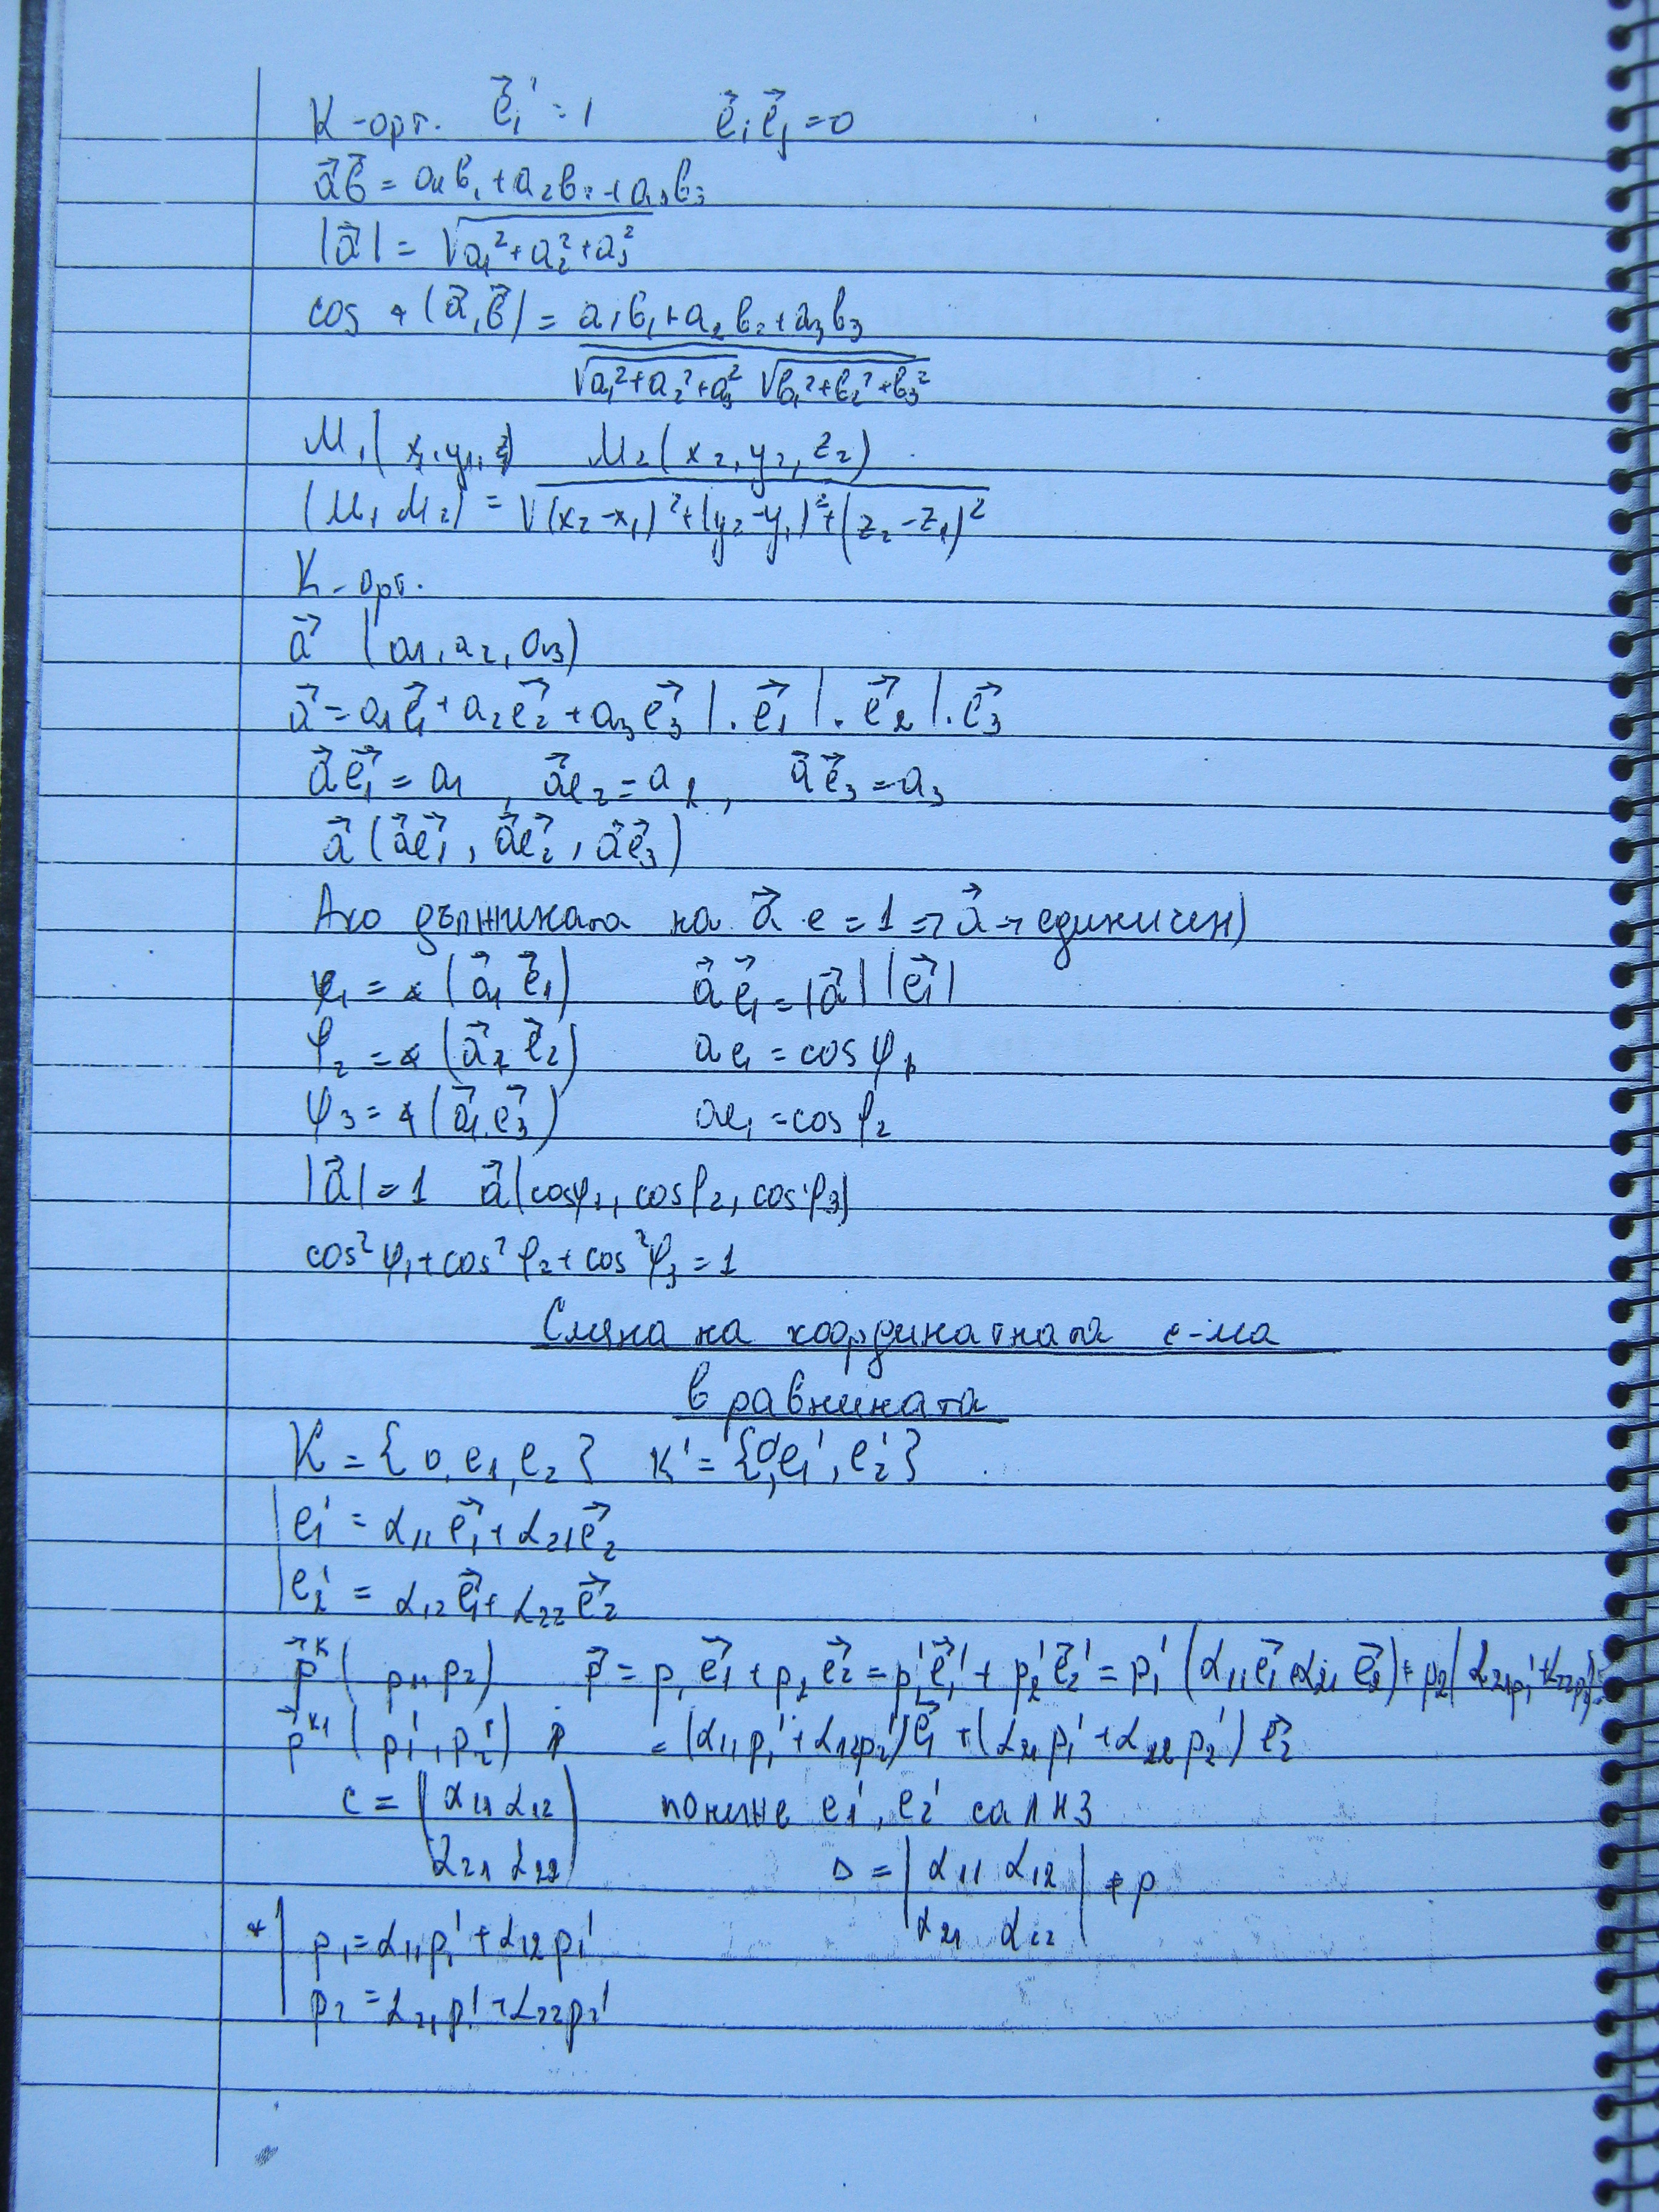 K-орт. e⃗₁' = 1 e⃗ᵢe⃗ⱼ = 0
a⃗b⃗ = a₁b₁ + a₂b₂ + a₃b₃
|a⃗| = √(a₁² + a₂² + a₃²)
cos ∢(a⃗, b⃗) = (a₁b₁ + a₂b₂ + a₃b₃) / (√(a₁² + a₂² + a₃²) √(b₁² + b₂² + b₃²))
M₁(x₁, y₁, z₁) M₂(x₂, y₂, z₂)
|M₁M₂| = √((x₂-x₁)² + (y₂-y₁)² + (z₂-z₁)²)
K-орт.
a⃗ (a₁, a₂, a₃)
a⃗ = a₁e⃗₁ + a₂e⃗₂ + a₃e⃗₃ |. e⃗₁ |. e⃗₂ |. e⃗₃
a⃗e⃗₁ = a₁, a⃗e₂ = a₂, a⃗e⃗₃ = a₃
a⃗ (a⃗e⃗₁, a⃗e⃗₂, a⃗e⃗₃)
Ако дължината на a⃗ е = 1 => a⃗ → единичен)
φ₁ = ∢(a⃗₁ e⃗₁) a⃗ e⃗₁ = |a⃗| |e⃗₁|
φ₂ = ∢(a⃗₂ e⃗₂) ae₁ = cos φ₁
φ₃ = ∢(a⃗₁ e⃗₃) ae₁ = cos φ₂
|a⃗| = 1 a⃗(cosφ₁, cosφ₂, cosφ₃)
cos²φ₁ + cos²φ₂ + cos²φ₃ = 1
Смяна на координатната с-ма
в равнината
K = {0, e₁, e₂} K' = {0', e₁', e₂'}
e₁' = α₁₁e⃗₁ + α₂₁e⃗₂
e₂' = α₁₂e⃗₁ + α₂₂e⃗₂
p⃗ᴷ (p₁, p₂) p⃗ = p₁e⃗₁ + p₂e⃗₂ = p₁'e⃗₁' + p₂'e⃗₂' = p₁'(α₁₁e⃗₁ + α₂₁e⃗₂) + p₂(α₂₁p₁' + α₂₂p₂') =
p⃗ᴷ¹ (p₁', p₂') = (α₁₁p₁' + α₁₂p₂')e⃗₁ + (α₂₁p₁' + α₂₂p₂')e⃗₂
C = (α₁₁ α₁₂ понеже e₁', e₂' са ЛНЗ
α₂₁ α₂₂) Δ = |α₁₁ α₁₂
α₂₁ α₂₂| ≠ p
* p₁ = α₁₁p₁' + α₁₂p₁'
p₂ = α₂₁p₁' + α₂₂p₂'